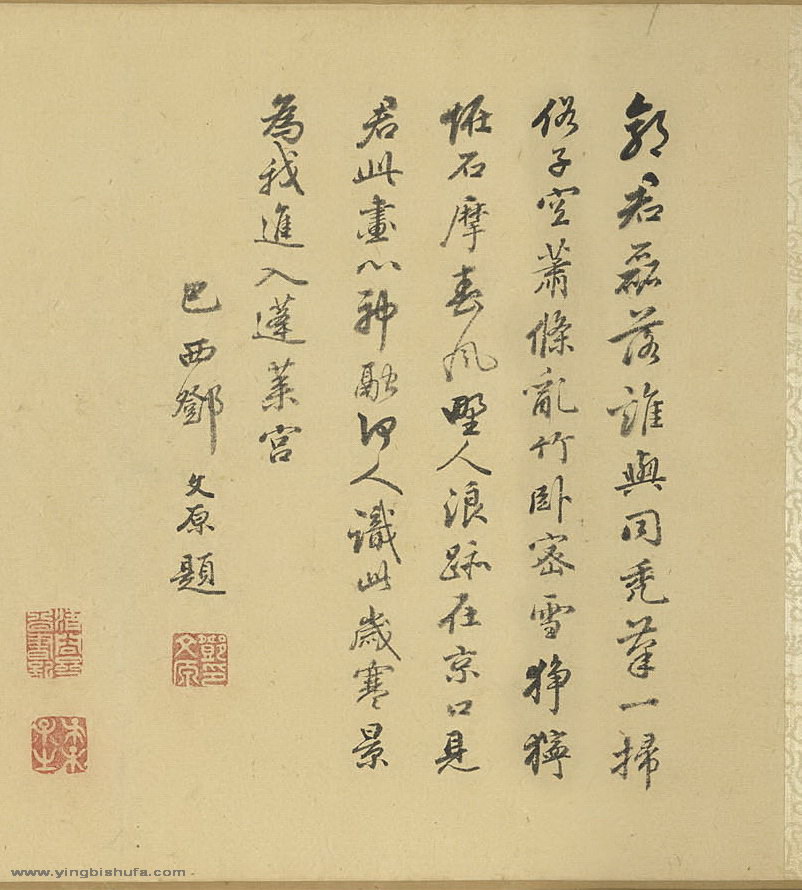 郭君磊落誰與同禿筆一掃
俗子空蕭條亂竹臥密雪猙獰
恠石摩春風野人浪跡在京口見
君此畫心神融何人識此歲寒景
為我進入蓬萊宮
巴西鄧文原題
鄧文原印
www.yingbishufa.com